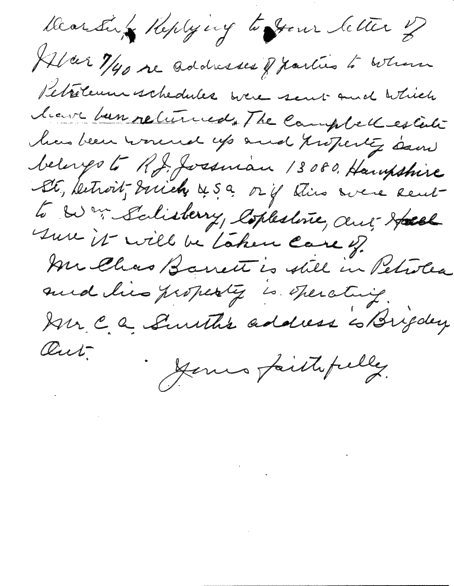 Dear Sir, Replying to your letter of
Mar 7/40 re addresses of parties to whom
Petroleum schedules were sent and which
have been returned. The Campbell estate
has been wound up and property now
belongs to R J Jossman 13080, Hampshire
St, Detroit, Mich, U.S.A. or if this were sent
to Wm Salisberry, Coplestone, Ont, feel
sure it will be taken care of.
Mr Chas Barrett is still in Petrolea
and his property is operating.
Mr. C. A. Smith's address is Brigden,
Ont.
Yours faithfully.